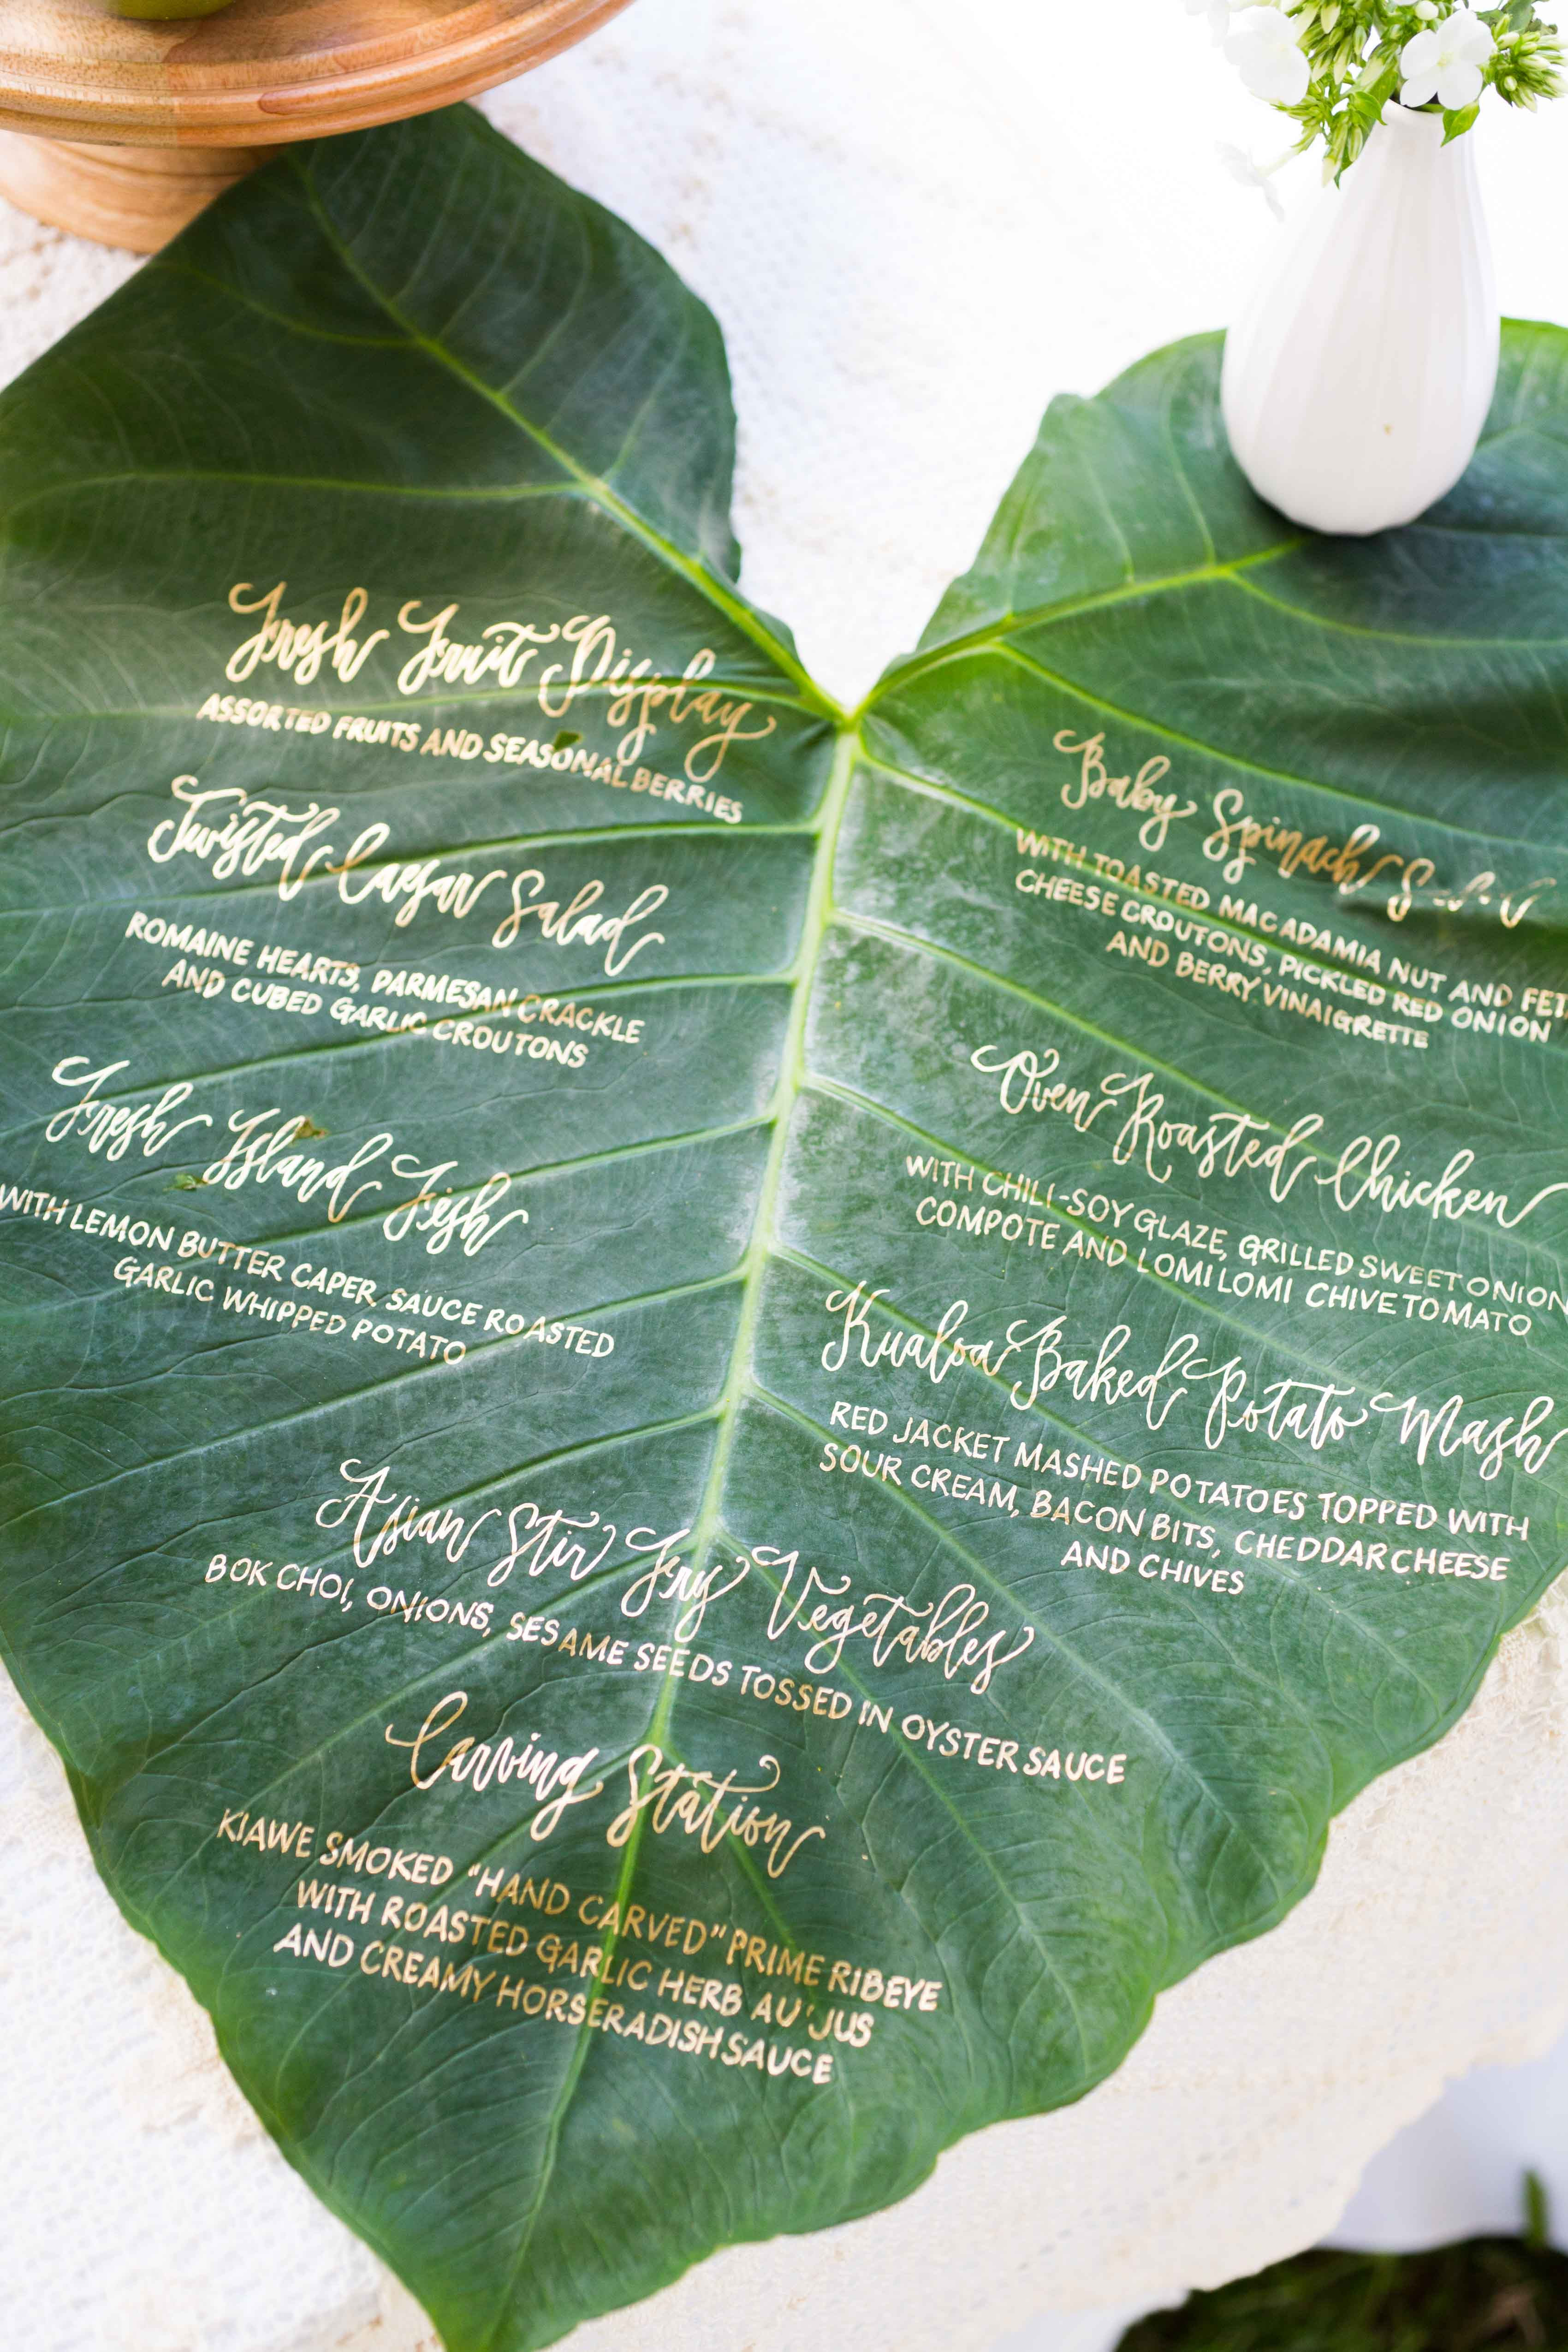 Fresh Fruit Display
ASSORTED FRUITS AND SEASONAL BERRIES
Twisted Caesar Salad
ROMAINE HEARTS, PARMESAN CRACKLE
AND CUBED GARLIC CROUTONS
Fresh Island Fish
WITH LEMON BUTTER CAPER SAUCE ROASTED
GARLIC WHIPPED POTATO
Baby Spinach Salad
WITH TOASTED MACADAMIA NUT AND FET
CHEESE CROUTONS, PICKLED RED ONION
AND BERRY VINAIGRETTE
Oven Roasted Chicken
WITH CHILI-SOY GLAZE, GRILLED SWEET ONION
COMPOTE AND LOMI LOMI CHIVE TOMATO
Kualoa Baked Potato Mash
RED JACKET MASHED POTATOES TOPPED WITH
SOUR CREAM, BACON BITS, CHEDDAR CHEESE
AND CHIVES
Asian Stir Fry Vegetables
BOK CHOI, ONIONS, SESAME SEEDS TOSSED IN OYSTER SAUCE
Carving Station
KIAWE SMOKED "HAND CARVED" PRIME RIBEYE
WITH ROASTED GARLIC HERB AU'JUS
AND CREAMY HORSERADISH SAUCE